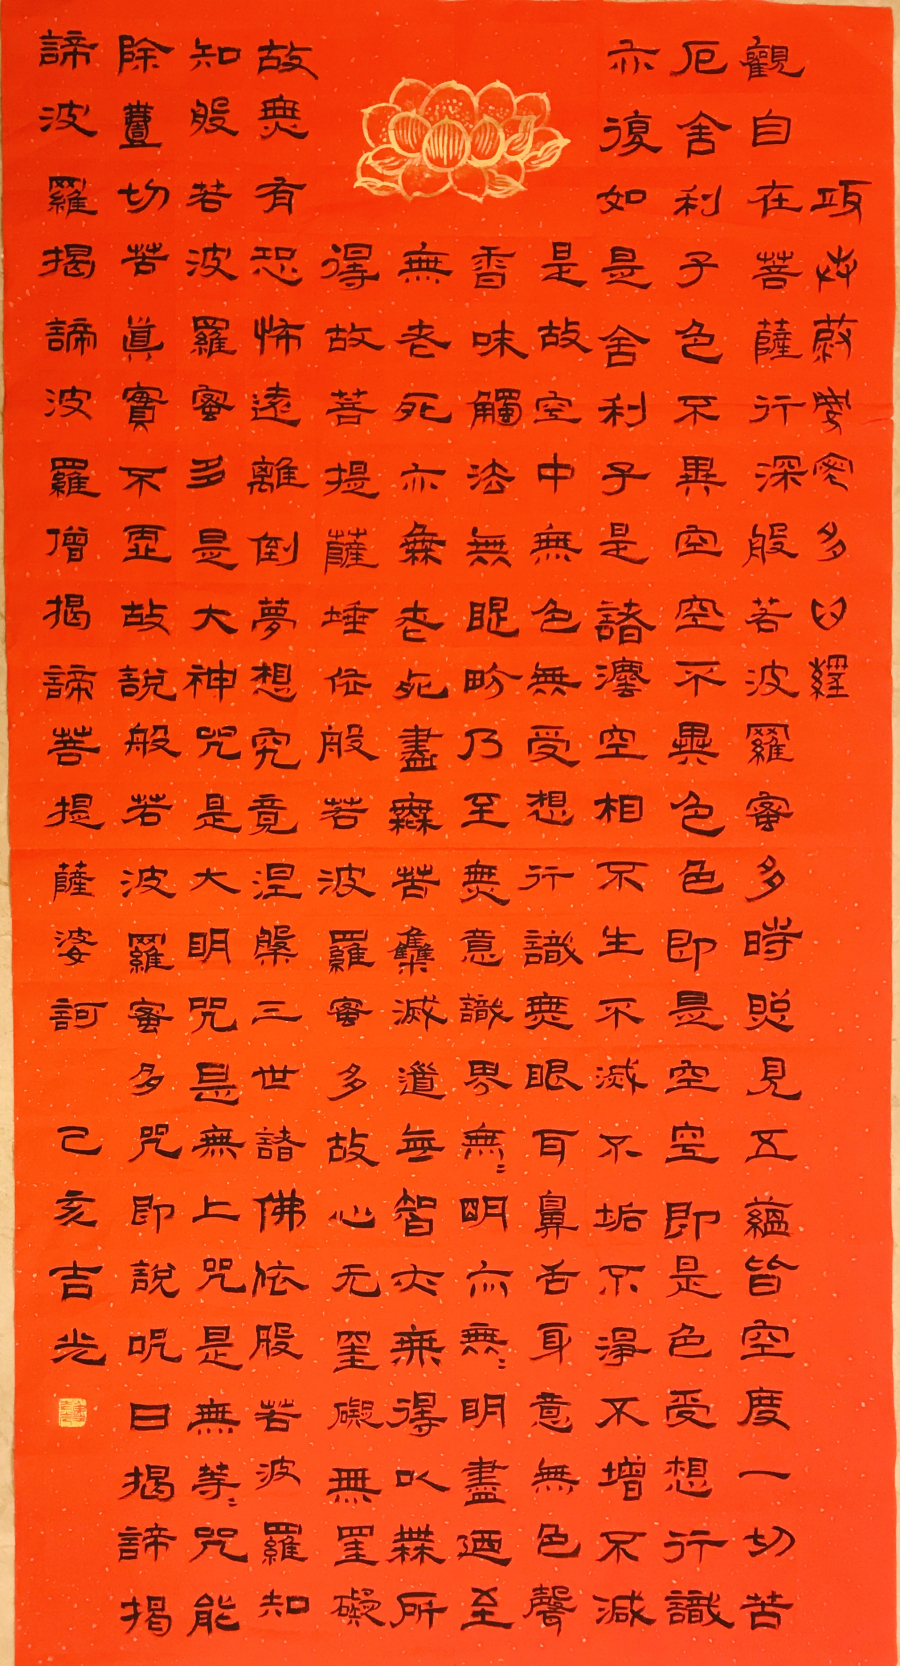 般若波羅蜜多心經
觀自在菩薩行深般若波羅蜜多時照見五蘊皆空度一切苦
厄舍利子色不異空空不異色色即是空空即是色受想行識
亦復如是舍利子是諸灋空相不生不滅不垢不淨不增不減
是故空中無色無受想行識無眼耳鼻舌身意無色聲
香味觸法無眼界乃至無意識界無〻明亦無〻明盡廼至
無老死亦無老死盡無苦集滅道無智亦無得以無所
得故菩提薩埵依般若波羅蜜多故心无罣礙無罣礙
故無有恐怖遠離倒夢想究竟涅槃三世諸佛依般若波羅知
知般若波羅蜜多是大神咒是大明咒是無上咒是無等〻咒能
除壹切苦眞實不虛故說般若波羅蜜多咒即說呪曰揭諦揭
諦波羅揭諦波羅僧揭諦菩提薩婆訶 己亥吉光